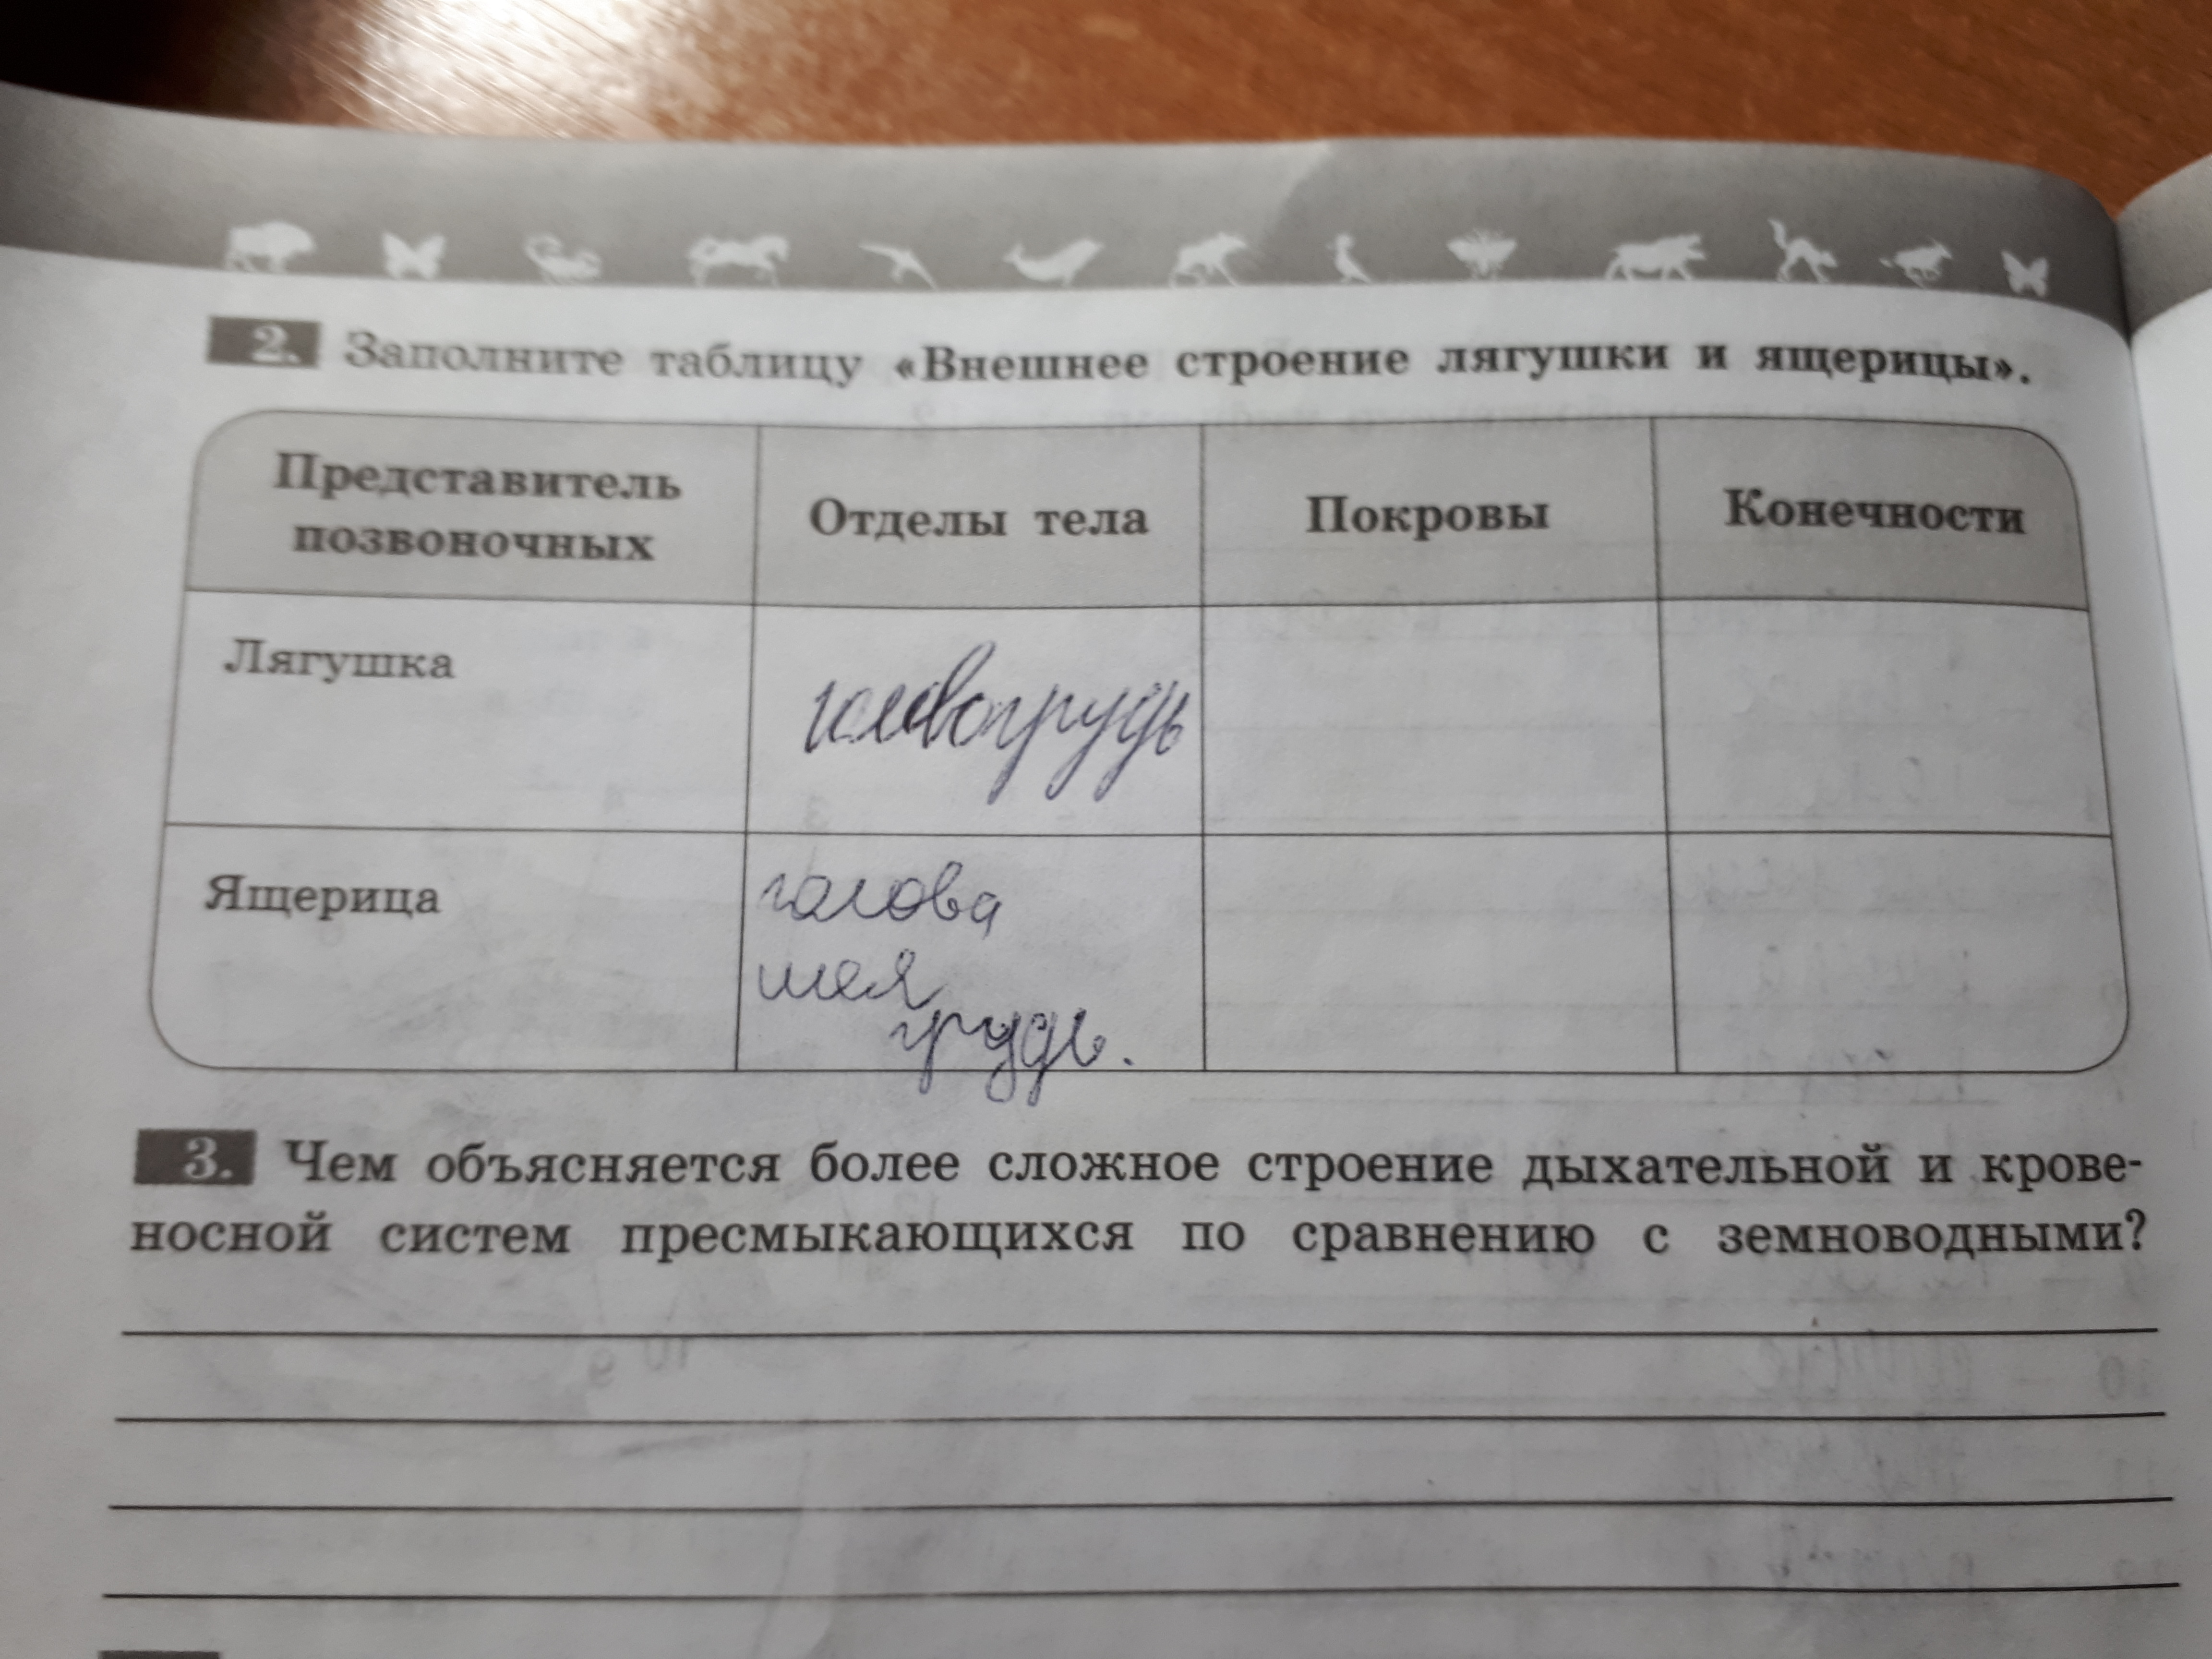 2. Заполните таблицу «Внешнее строение лягушки и ящерицы».
Представитель
позвоночных
Отделы тела
Покровы
Конечности
Лягушка
головогрудь
Ящерица
голова
шея
грудь.
3. Чем объясняется более сложное строение дыхательной и крове-
носной систем пресмыкающихся по сравнению с земноводными?